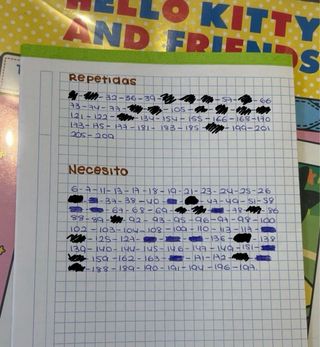 HELLO KITTY
AND FRIENDS
Repetidas
32-36-39 57 66
73-74-77 105
121-122 134-154-155-166-168-170
173-175-177-181-183-185 199-201
205-209
Necesito
6-7-11-13-17-18-19-21-23-24-25-26
37-38-40 47-49-51-58
67-68-69 78 86
88-89 92-93-95-96-97-98-100
102-103-104-108-109-110-113-117
125-127 136 138
139-140-144-145-146-147-149-151
159-162-163 171-172
188-189-190-191-194-196-197